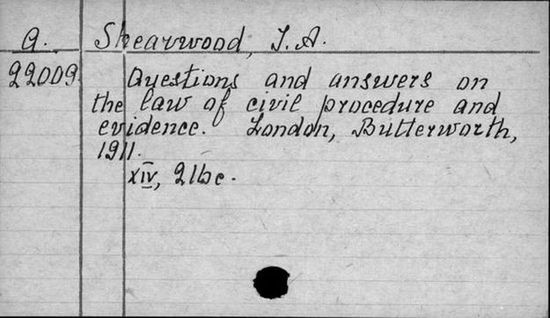 a. Shearwood, J. A.
22009. Questions and answers on
the law of civil procedure and
evidence. London, Butterworth,
1911.
XIV, 216 c.